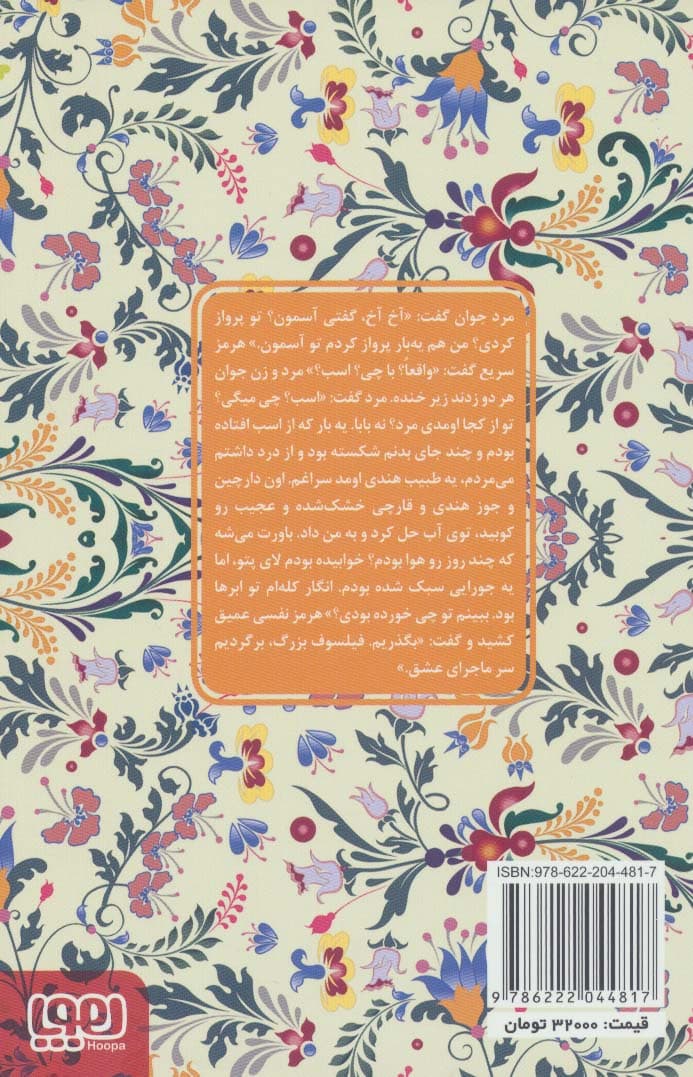 مرد جوان گفت: «آخ آخ، گفتی آسمون؟ تو پرواز
کردی؟ من هم یه‌بار پرواز کردم تو آسمون.» هرمز
سریع گفت: «واقعاً؟ با چی؟ اسب؟» مرد و زن جوان
هر دو زدند زیر خنده. مرد گفت: «اسب؟ چی میگی؟
تو از کجا اومدی مرد؟ نه بابا. یه بار که از اسب افتاده
بودم و چند جای بدنم شکسته بود و از درد داشتم
می‌مردم، یه طبیب هندی اومد سراغم. اون دارچین
و جوز هندی و قارچی خشک‌شده و عجیب رو
کوبید، توی آب حل کرد و به من داد. باورت می‌شه
که چند روز رو هوا بودم؟ خوابیده بودم لای پتو، اما
یه جورایی سبک شده بودم. انگار کله‌ام تو ابرها
بود. ببینم تو چی خورده بودی؟» هرمز نفسی عمیق
کشید و گفت: «بگذریم. فیلسوف بزرگ، برگردیم
سر ماجرای عشق.»
ISBN:978-622-204-481-7
9 786222 044817
قیمت: ۳۲۰۰۰ تومان
هوپا
Hoopa